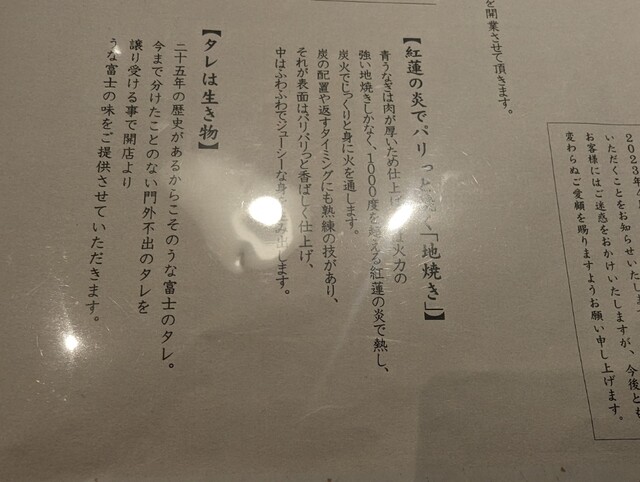 を開業させて頂きます。
【紅蓮の炎でパリっと焼く「地焼き」】
青うなぎは肉が厚いため仕上げ 火力の
強い地焼きしかなく、1000度を超える紅蓮の炎で熱し、
炭火でじっくりと身に火を通します。
炭の配置や返すタイミングにも熟練の技があり、
それが表面はパリパリっと香ばしく仕上げ、
中はふわふわでジューシーな身を生み出します。
【タレは生き物】
二十五年の歴史があるからこそのうな富士のタレ。
今まで分けたことのない門外不出のタレを
譲り受ける事で開店より
うな富士の味をご提供させていただきます。
2023年
いただくことをお知らせいたします
お客様にはご迷惑をおかけいたしますが、今後とも
変わらぬご愛顧を賜りますようお願い申し上げます。